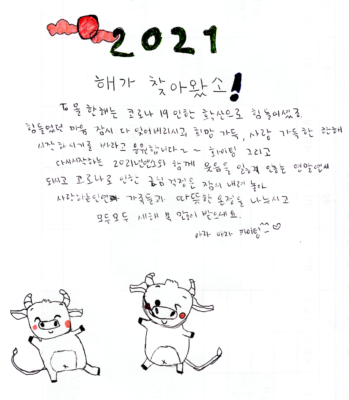 2021
해가 찾아왔소!
올 한해는 코로나 19 인한 확산으로 힘드셨죠
힘들었던 마음 잠시 다 잊어버리시고 희망 가득, 사랑 가득한 한해
시작하시기를 바라고 응원합니다~~ 화이팅 그리고
다시시작하는 2021년엔 함께 웃음을
되시고 코로나로 인한 근심 걱정은 잠시 내려 놓아
사랑하는 가족들과 따뜻한 온정을 나누시고
모두모두 새해 복 많이 받으세요.
아자 아자 화이팅^^♡